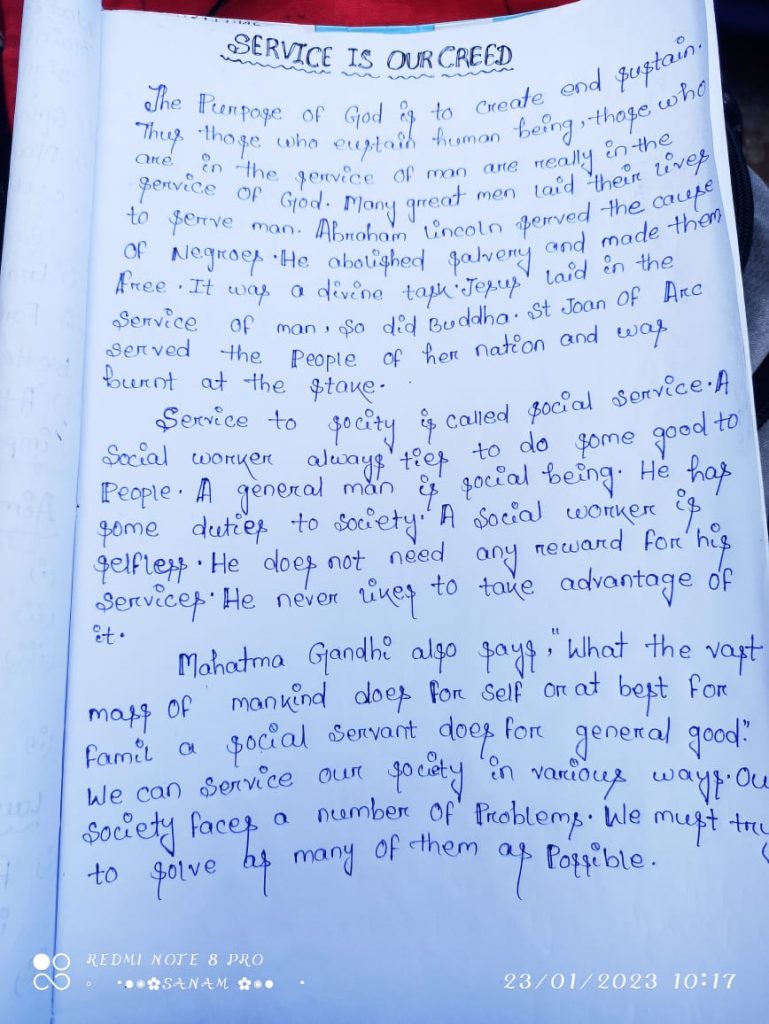 SERVICE IS OUR CREED
The Purpose of God is to create end sustain.
Thus those who eustain human being, those who
are in the service of man are really in the
service of God. Many great men laid their lives
to serve man. Abraham lincoln served the cause
of Negroes. He abolished salvery and made them
free. It was a divine task. Jesus laid in the
Service of man, so did Buddha. St Joan Of Arc
served the People of her nation and was
burnt at the stake.
Service to socity is called social service. A
Social worker always ties to do some good to
People. A general man is social being. He has
some duties to society. A social worker is
selfless. He does not need any reward for his
services. He never likes to take advantage of
it.
Mahatma Gandhi also says, "What the vast
mass of mankind does for self or at best for
famil a social servant does for general good."
We can service our society in various ways. Ou
society faces a number of Problems. We must try
to solve as many of them as Possible.
REDMI NOTE 8 PRO
SANAM
23/01/2023 10:17